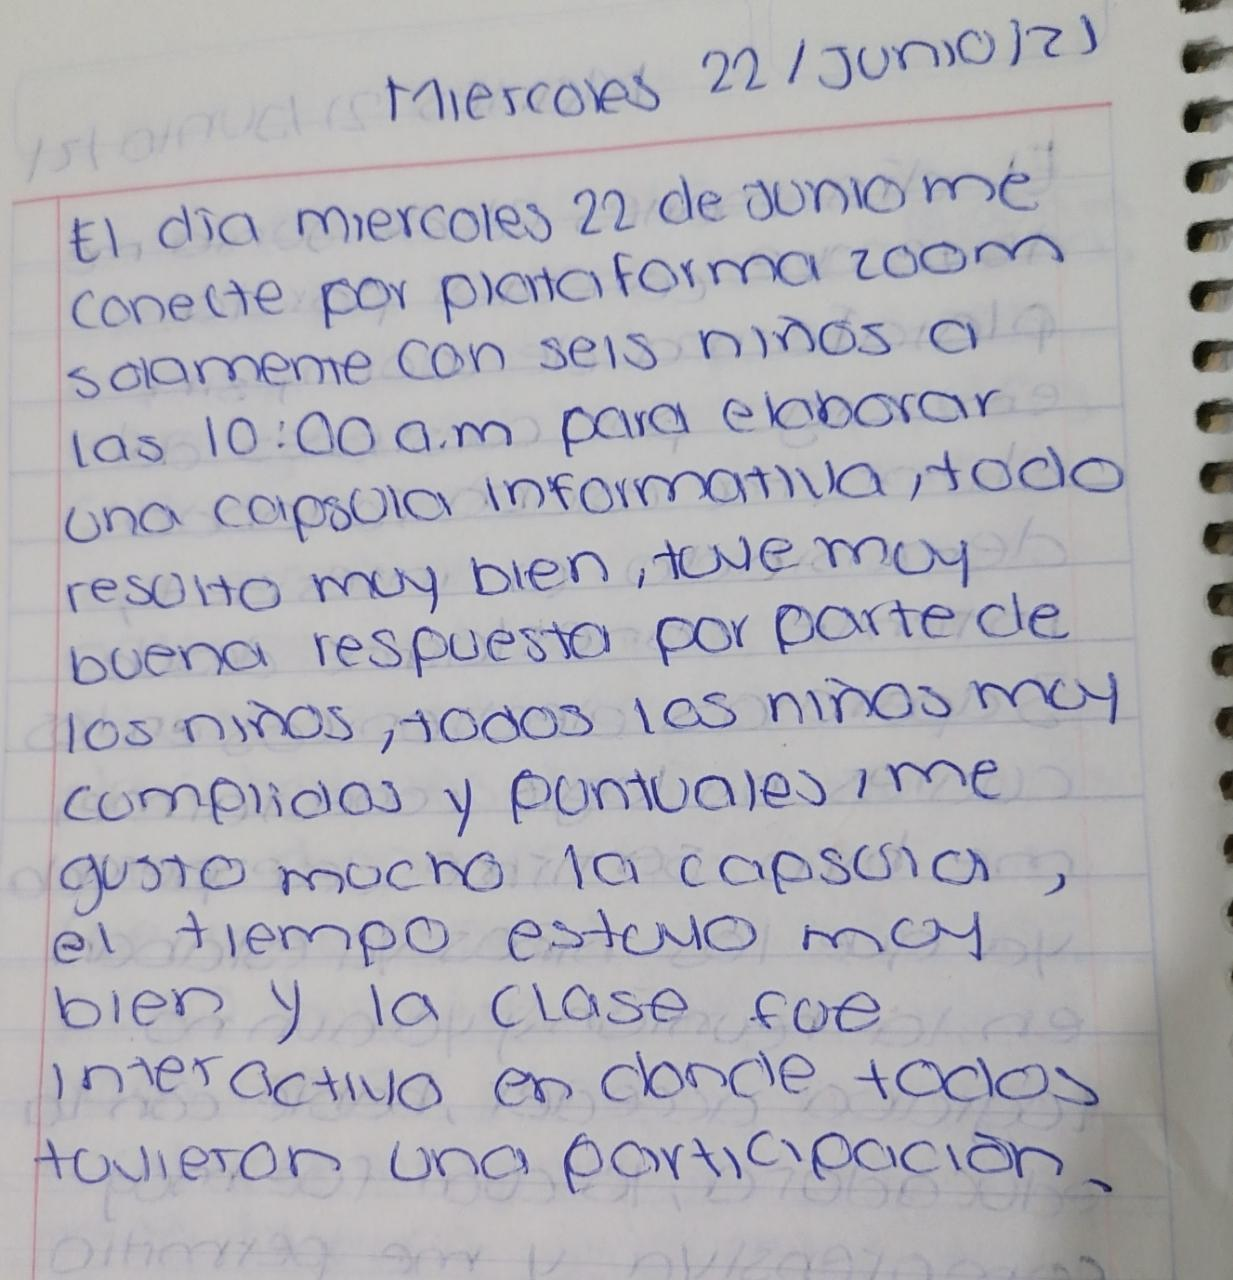 Miercoles 22/Junio/21
El dia miercoles 22 de Junio me
conecte por plataforma zoom
solamente con seis niños a
las 10:00 a.m para elaborar
una capsula informativa, todo
resulto muy bien, tuve muy
buena respuesta por parte de
los niños, todos los niños muy
cumplidos y puntuales, me
gusto mucho la capsula,
el tiempo estuvo muy
bien y la clase fue
interactiva en donde todos
tuvieron una participación.